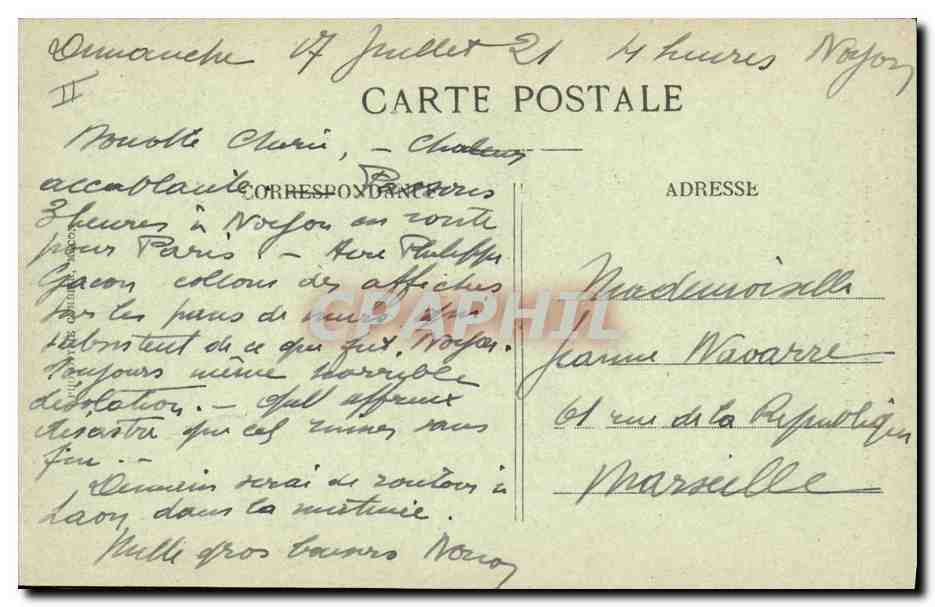 Dimanche 17 Juillet 21 4 heures Noyon
II
CARTE POSTALE
Nonotte Cherie, – Chaleur
accablante. – Passons
CORRESPONDANCE
ADRESSE
3 heures à Noyon en route
pour Paris – Avec Philippe
Gacon collons des affiches
sur les pans de murs qui
subsistent de ce que fut Noyon.
Toujours même horrible
désolation. – Quel affreux
désastre que ces ruines sans
fin. –
Demain serai de retour à
Laon dans la matinée.
Mille gros baisers Nonoy
Mademoiselle
Jeanne Navarre
61 rue de la Republique
Marseille
CPAPHIL